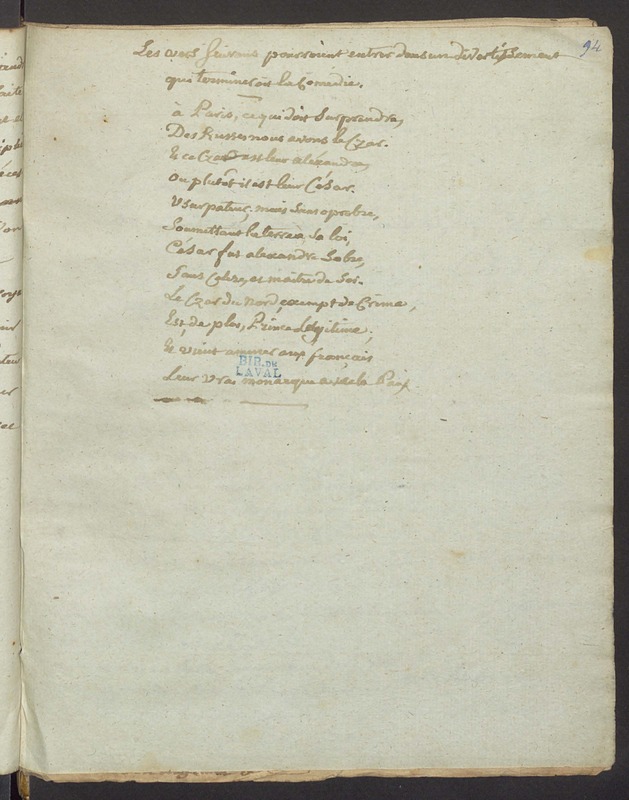 94
Les vers suivans pourroient entrer dans un divertissement
qui termineroit la Comédie.
à Paris, ce qui doit surprendre,
Des Russes nous avons le Czar.
Et ce Czar est leur alexandre,
ou plutôt il est leur César.
Usurpateur, mais sans oprobre,
Soumettant la terre à sa loi,
César fut alexandre sobre,
Sans colère, et maître de soi.
Le Czar du nord, exempt de Crime,
Est, de plus, Prince légitime;
Et vient amener aux français
Leur vrai monarque avec la Paix
BIB. DE
LAVAL